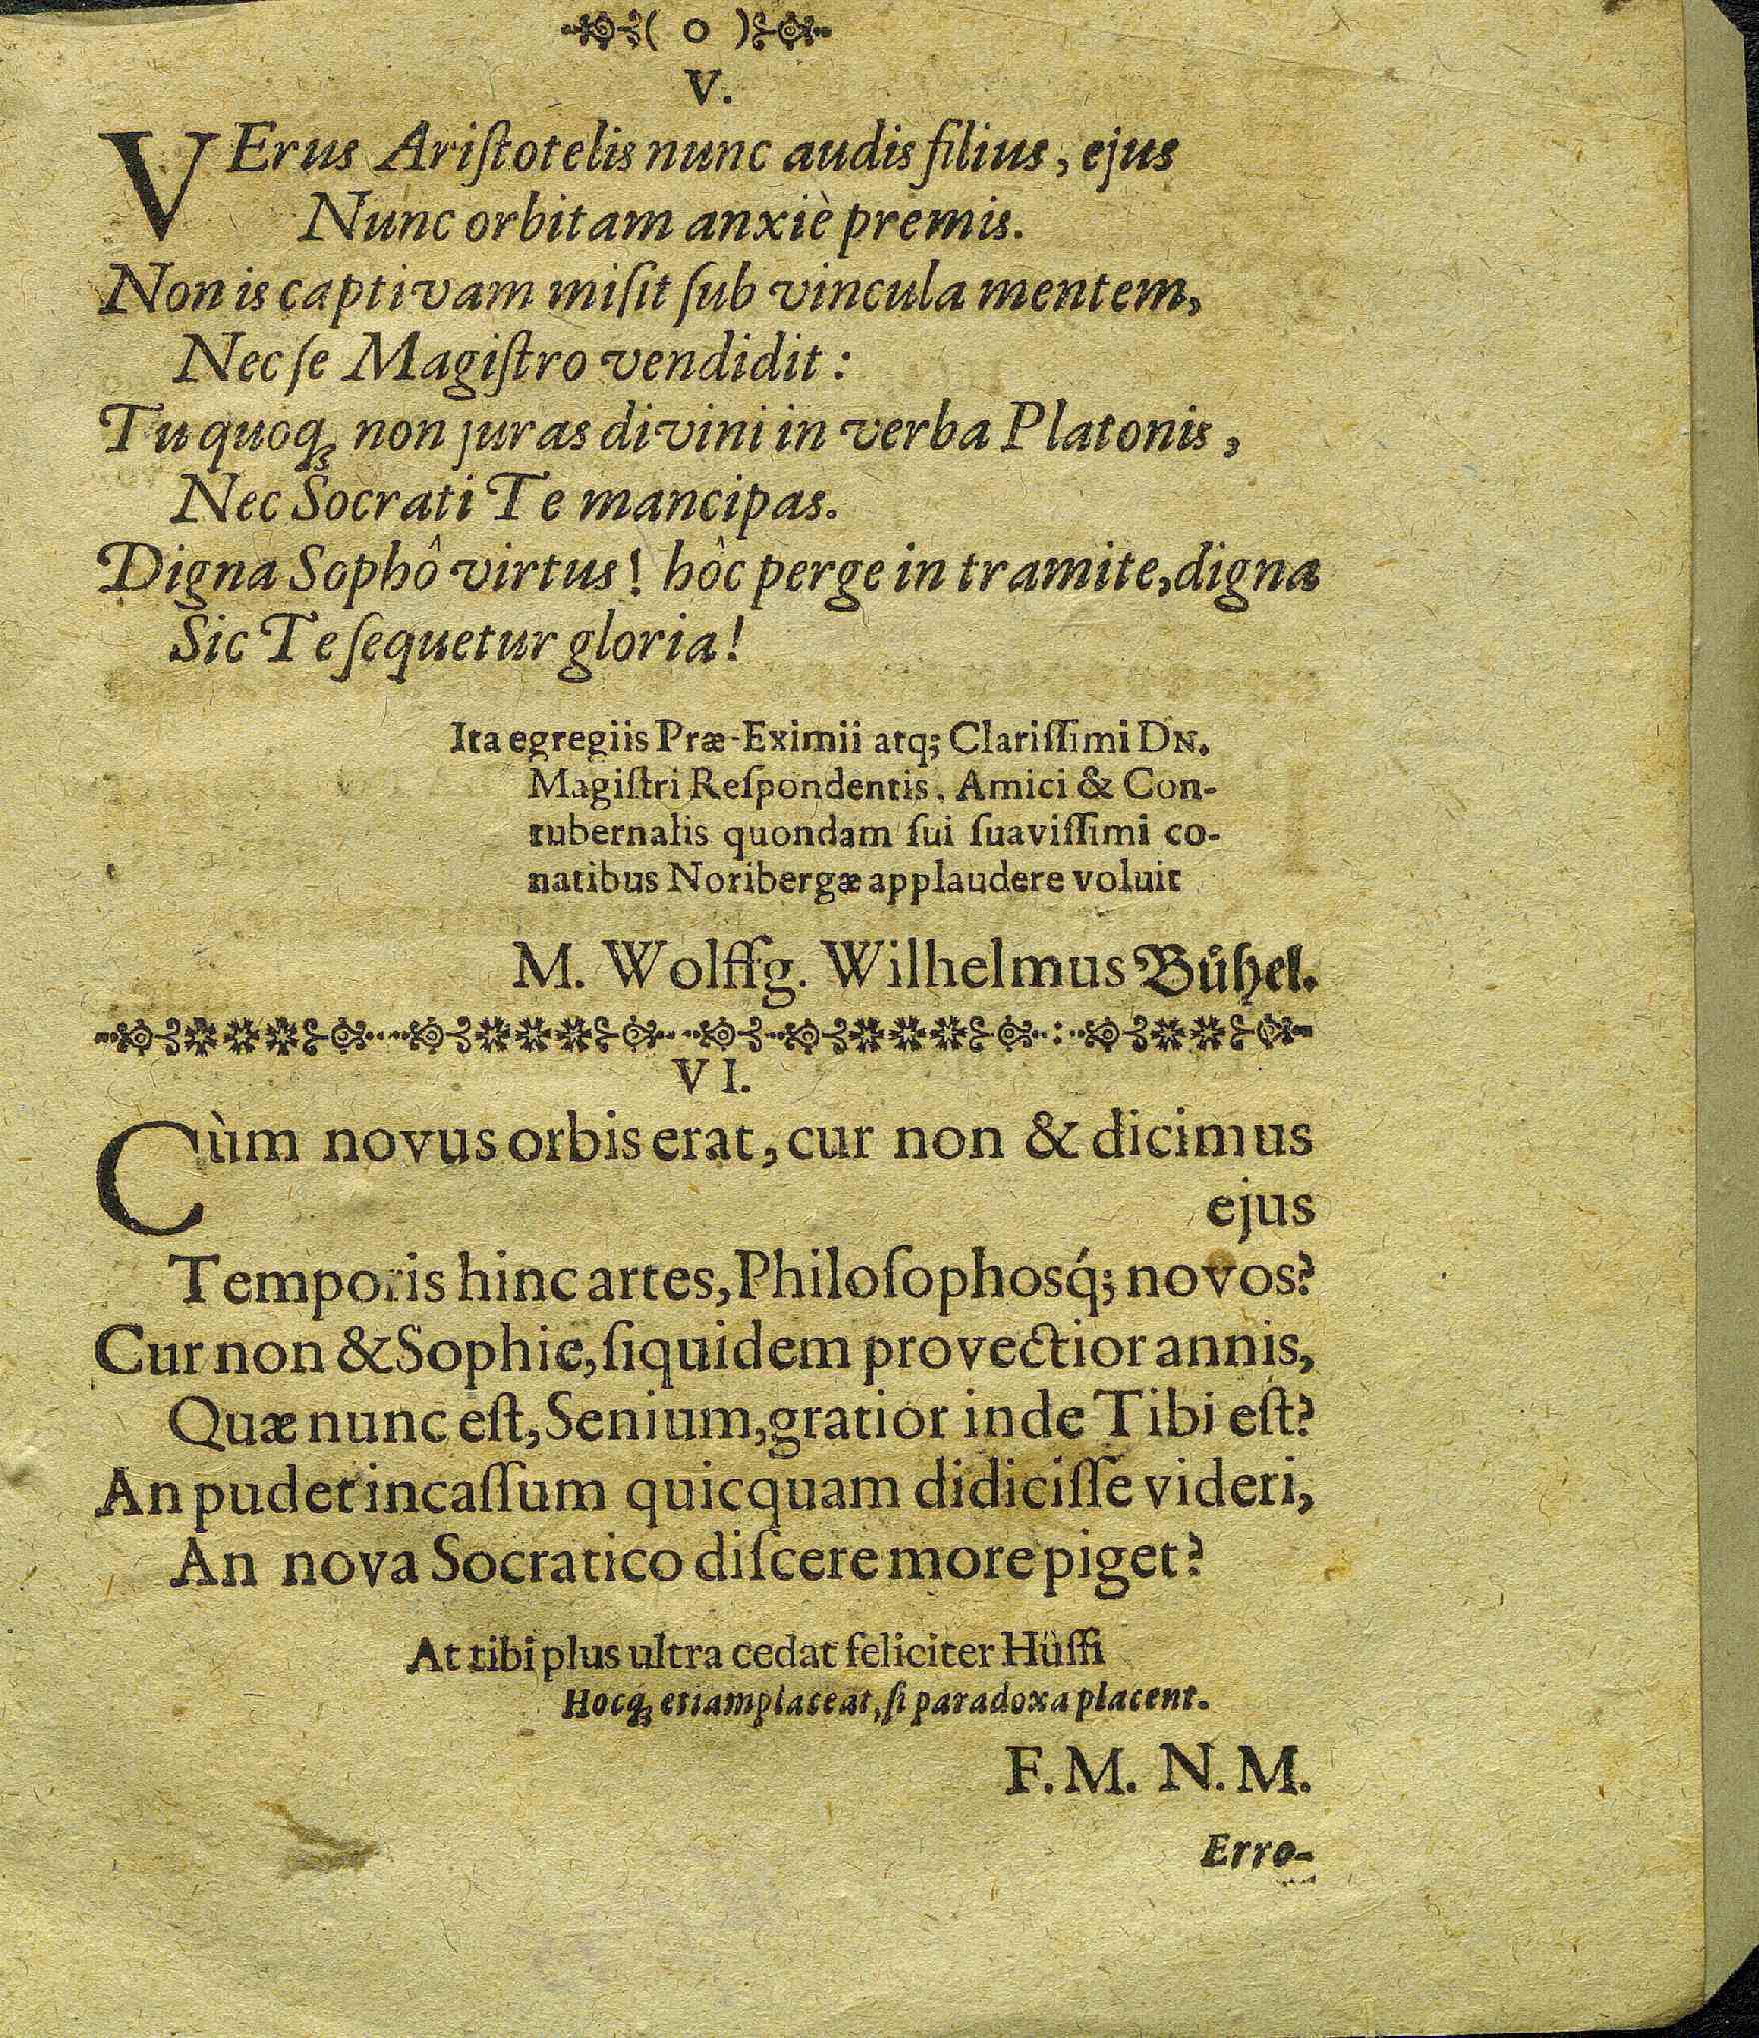 ( o )
V.
VErus Ariſtotelis nunc audis filius, ejus
Nunc orbitam anxiè premis.
Non is captivam miſit ſub vincula mentem,
Nec ſe Magiſtro vendidit:
Tu quoqꝫ non juras divini in verba Platonis,
Nec Socrati Te mancipas.
Digna Sophô virtus! hôc perge in tramite, digna
Sic Te ſequetur gloria!
Ita egregiis Præ-Eximii atq; Clariſſimi DN.
Magiſtri Reſpondentis, Amici & Con-
tubernalis quondam ſui ſuaviſſimi co-
natibus Noribergæ applaudere voluit
M. Wolffg. Wilhelmus Bůhel.
VI.
Cùm novus orbis erat, cur non & dicimus
ejus
Temporis hinc artes, Philoſophosq́; novos?
Cur non & Sophie, ſiquidem provectior annis,
Quæ nunc eſt, Senium, gratior inde Tibi eſt?
An pudet incaſſum quicquam didiciſſe videri,
An nova Socratico diſcere more piget?
At tibi plus ultra cedat feliciter Hüſſi
Hocqꝫ etiam placeat, ſi paradoxa placent.
F. M. N. M.
Erro-